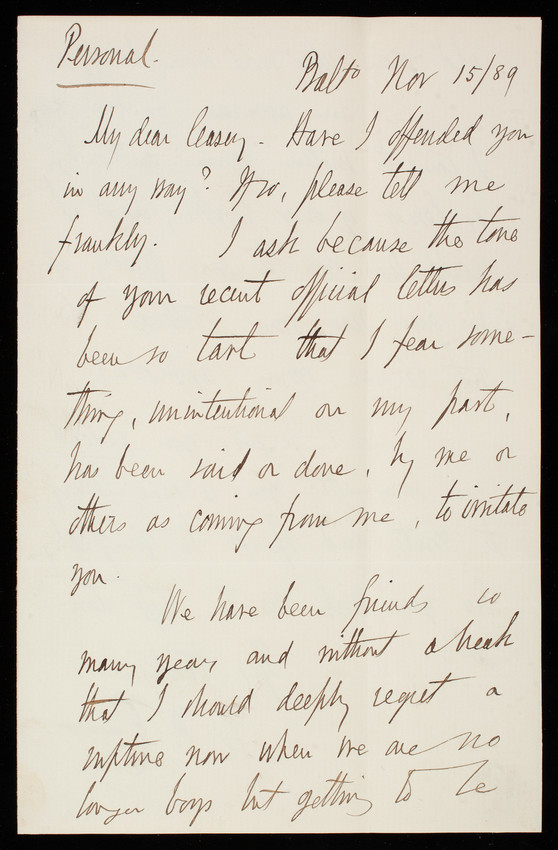 Personal.
Balto Nov 15/89
My dear Casey - Have I offended you
in any way? If so, please tell me
frankly. I ask because the tone
of your recent official letters has
been so tart that I fear some-
thing, unintentional on my part,
has been said or done, by me or
others as coming from me, to irritate
you.
We have been friends so
many years and without a break
that I should deeply regret a
rupture now when we are no
longer boys but getting to be